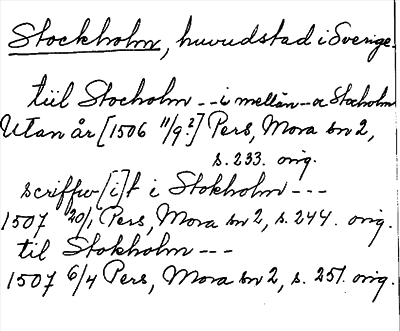 Stockholm, huvudstad i Sverige.
tiil Stocholm -- i mellan -- oc Stocholm
Utan år [1506 11/9?] Pers, Mora sn 2,
s. 233. orig.
scriffw[i]t i Stokholm ---
1507 20/1 Pers, Mora sn 2, s. 244. orig.
til Stokholm ---
1507 6/4 Pers, Mora sn 2, s. 251. orig.